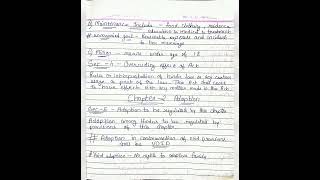 b) Maintenance Include - food clothing, residence
education & medical & treatment
# unmarried girl - Reasonable expenses and incident
to her marriage
c) Minor - means under age of 18
Sec - 4 - Overriding effect of Act
Rules or interpretation of hindu law or any custom
usage as part of the law. This Act that ceases
to have effect with any matter made in the Act
Chapter-2 Adoption
Sec-5 - Adoption to be regulated by this chapter
Adoption among Hindus to be regulated by
provisions of this chapter
# Adoption in contravention of said provisions
shall be VOID
# Void adoption - No rights to adoptive family